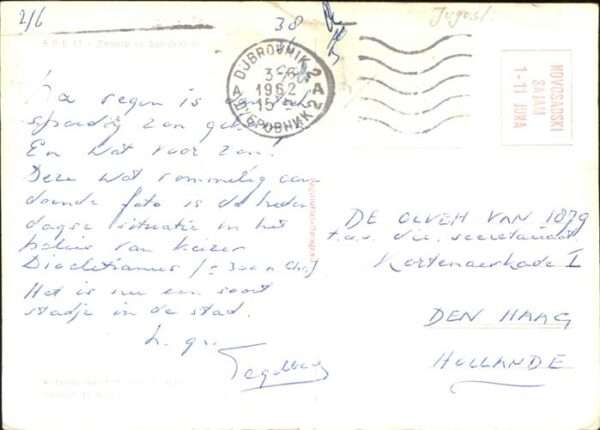 2/6
38
Jugosl.
DUBROVNIK
1962
15
ДУБРОВНИК
NOVOSADSKI
SAJAM
1-11 JUNA
De regen is
spoedig zon
En wat voor zon!
Deze wat rommelig aan
doende foto is de heden
daagse situatie in het
paleis van keizer
Diocletianus (± 300 n Chr.)
Het is nu een soort
stadje in de stad.
h. gr.
Tegelberg
DE OLVEH VAN 1879
t.a.v. dir. secretariaat
Kortenaerkade 1
DEN HAAG
HOLLANDE